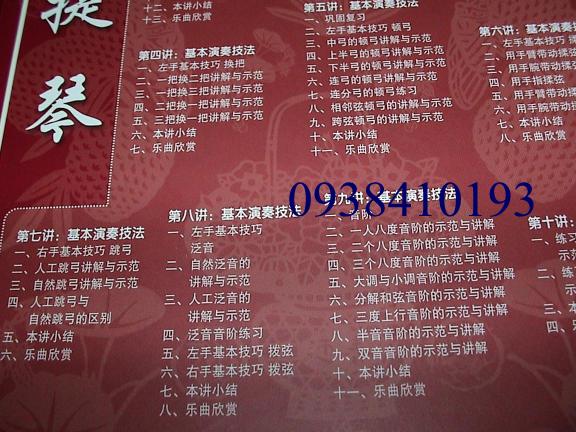 提
琴
十二、本讲小结
十三、乐曲欣赏
第四讲：基本演奏技法
一、左手基本技巧 换把
二、一把换二把讲解与示范
三、一把换三把讲解与示范
四、二把换一把讲解与示范
五、三把换一把讲解与示范
六、本讲小结
七、乐曲欣赏
第五讲：基本演奏技法
一、巩固复习
二、左手基本技巧 顿弓
三、中弓的顿弓讲解与示范
四、上半弓的顿弓讲解与示范
五、下半弓的顿弓讲解与示范
六、连弓的顿弓讲解与示范
七、连分弓的顿弓练习
八、相邻弦顿弓的讲解与示范
九、跨弦顿弓的讲解与示范
十、本讲小结
十一、乐曲欣赏
第六讲：基
一、左手基本技巧 揉
二、用手臂带动揉弦
三、用手腕带动揉弦
四、用手指揉弦
五、用手臂带动揉
六、用手腕带动揉
七、本讲小结
八、乐曲欣赏
第七讲：基本演奏技法
一、右手基本技巧 跳弓
二、人工跳弓讲解与示范
三、自然跳弓讲解与示范
四、人工跳弓与
自然跳弓的区别
五、本讲小结
六、乐曲欣赏
第八讲：基本演奏技法
一、左手基本技巧
泛音
二、自然泛音的
讲解与示范
三、人工泛音的
讲解与示范
四、泛音音阶练习
五、左手基本技巧 拨弦
六、右手基本技巧 拨弦
七、本讲小结
八、乐曲欣赏
第九讲：基本演奏技法
一、音阶
二、一人八度音阶的示范与讲解
三、二个八度音阶的示范与讲解
四、三个八度音阶的示范与讲解
五、大调与小调音阶的示范与讲解
六、分解和弦音阶的示范与讲解
七、三度上行音阶的示范与讲解
八、半音音阶的示范与讲解
九、双音音阶的示范与讲解
十、本讲小结
十一、乐曲欣赏
第十讲：
一、练习
的示
二、练
示
三、练
的
四、本
五、乐
0938410193